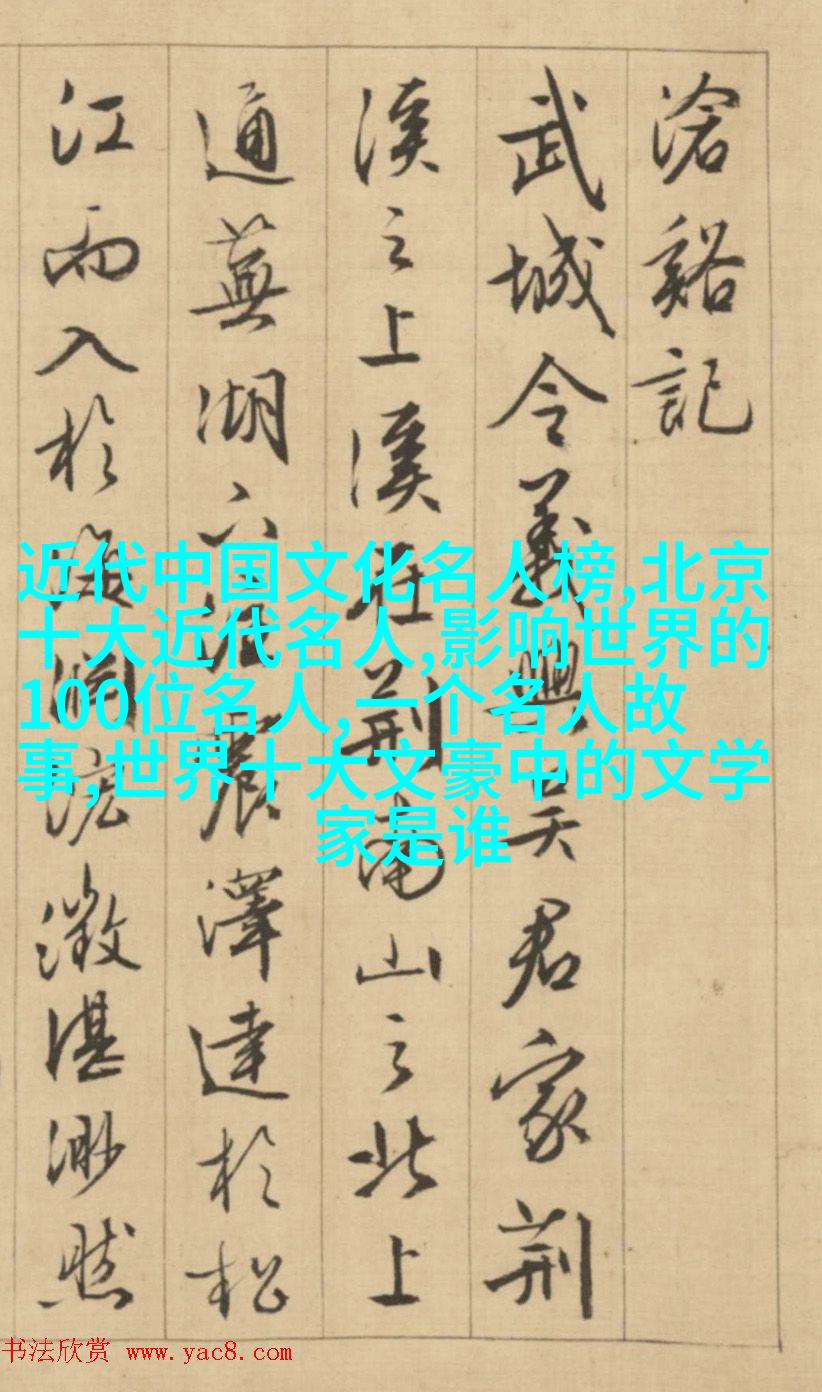 滄谿記
武城令義興吳君家荆
溪之上溪在荆南山之北上
通蕪湖下注震澤達於松
江而入於海澂湛渺然
近代中国文化名人榜,北京
十大近代名人,影响世界的
100位名人,一个名人故
事,世界十大文豪中的文学
家是谁
书法欣赏 www.yac8.com